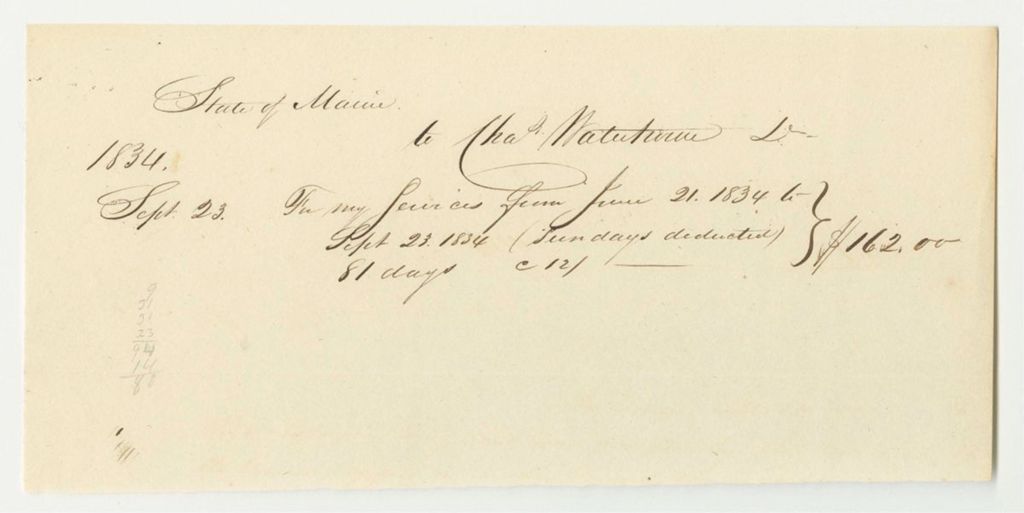 State of Maine.
to Chas. Waterhouse Dr
1834.
Sept. 23. For my Services from June 21. 1834 to
Sept 23. 1834 (Sundays deducted) $162.00
81 days @ 12/
9
31
31
23
94
14
80